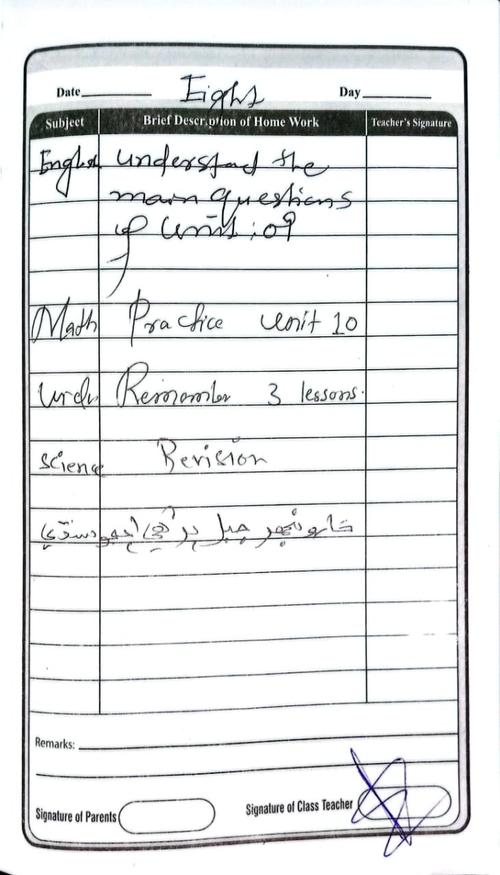 Eight
Date Day
Subject Brief Description of Home Work Teacher's Signature
English understand the
main questions
of Unit :09
Math Practice Unit 10
Urdu Remember 3 lessons.
Science Revision
Remarks:
Signature of Parents Signature of Class Teacher